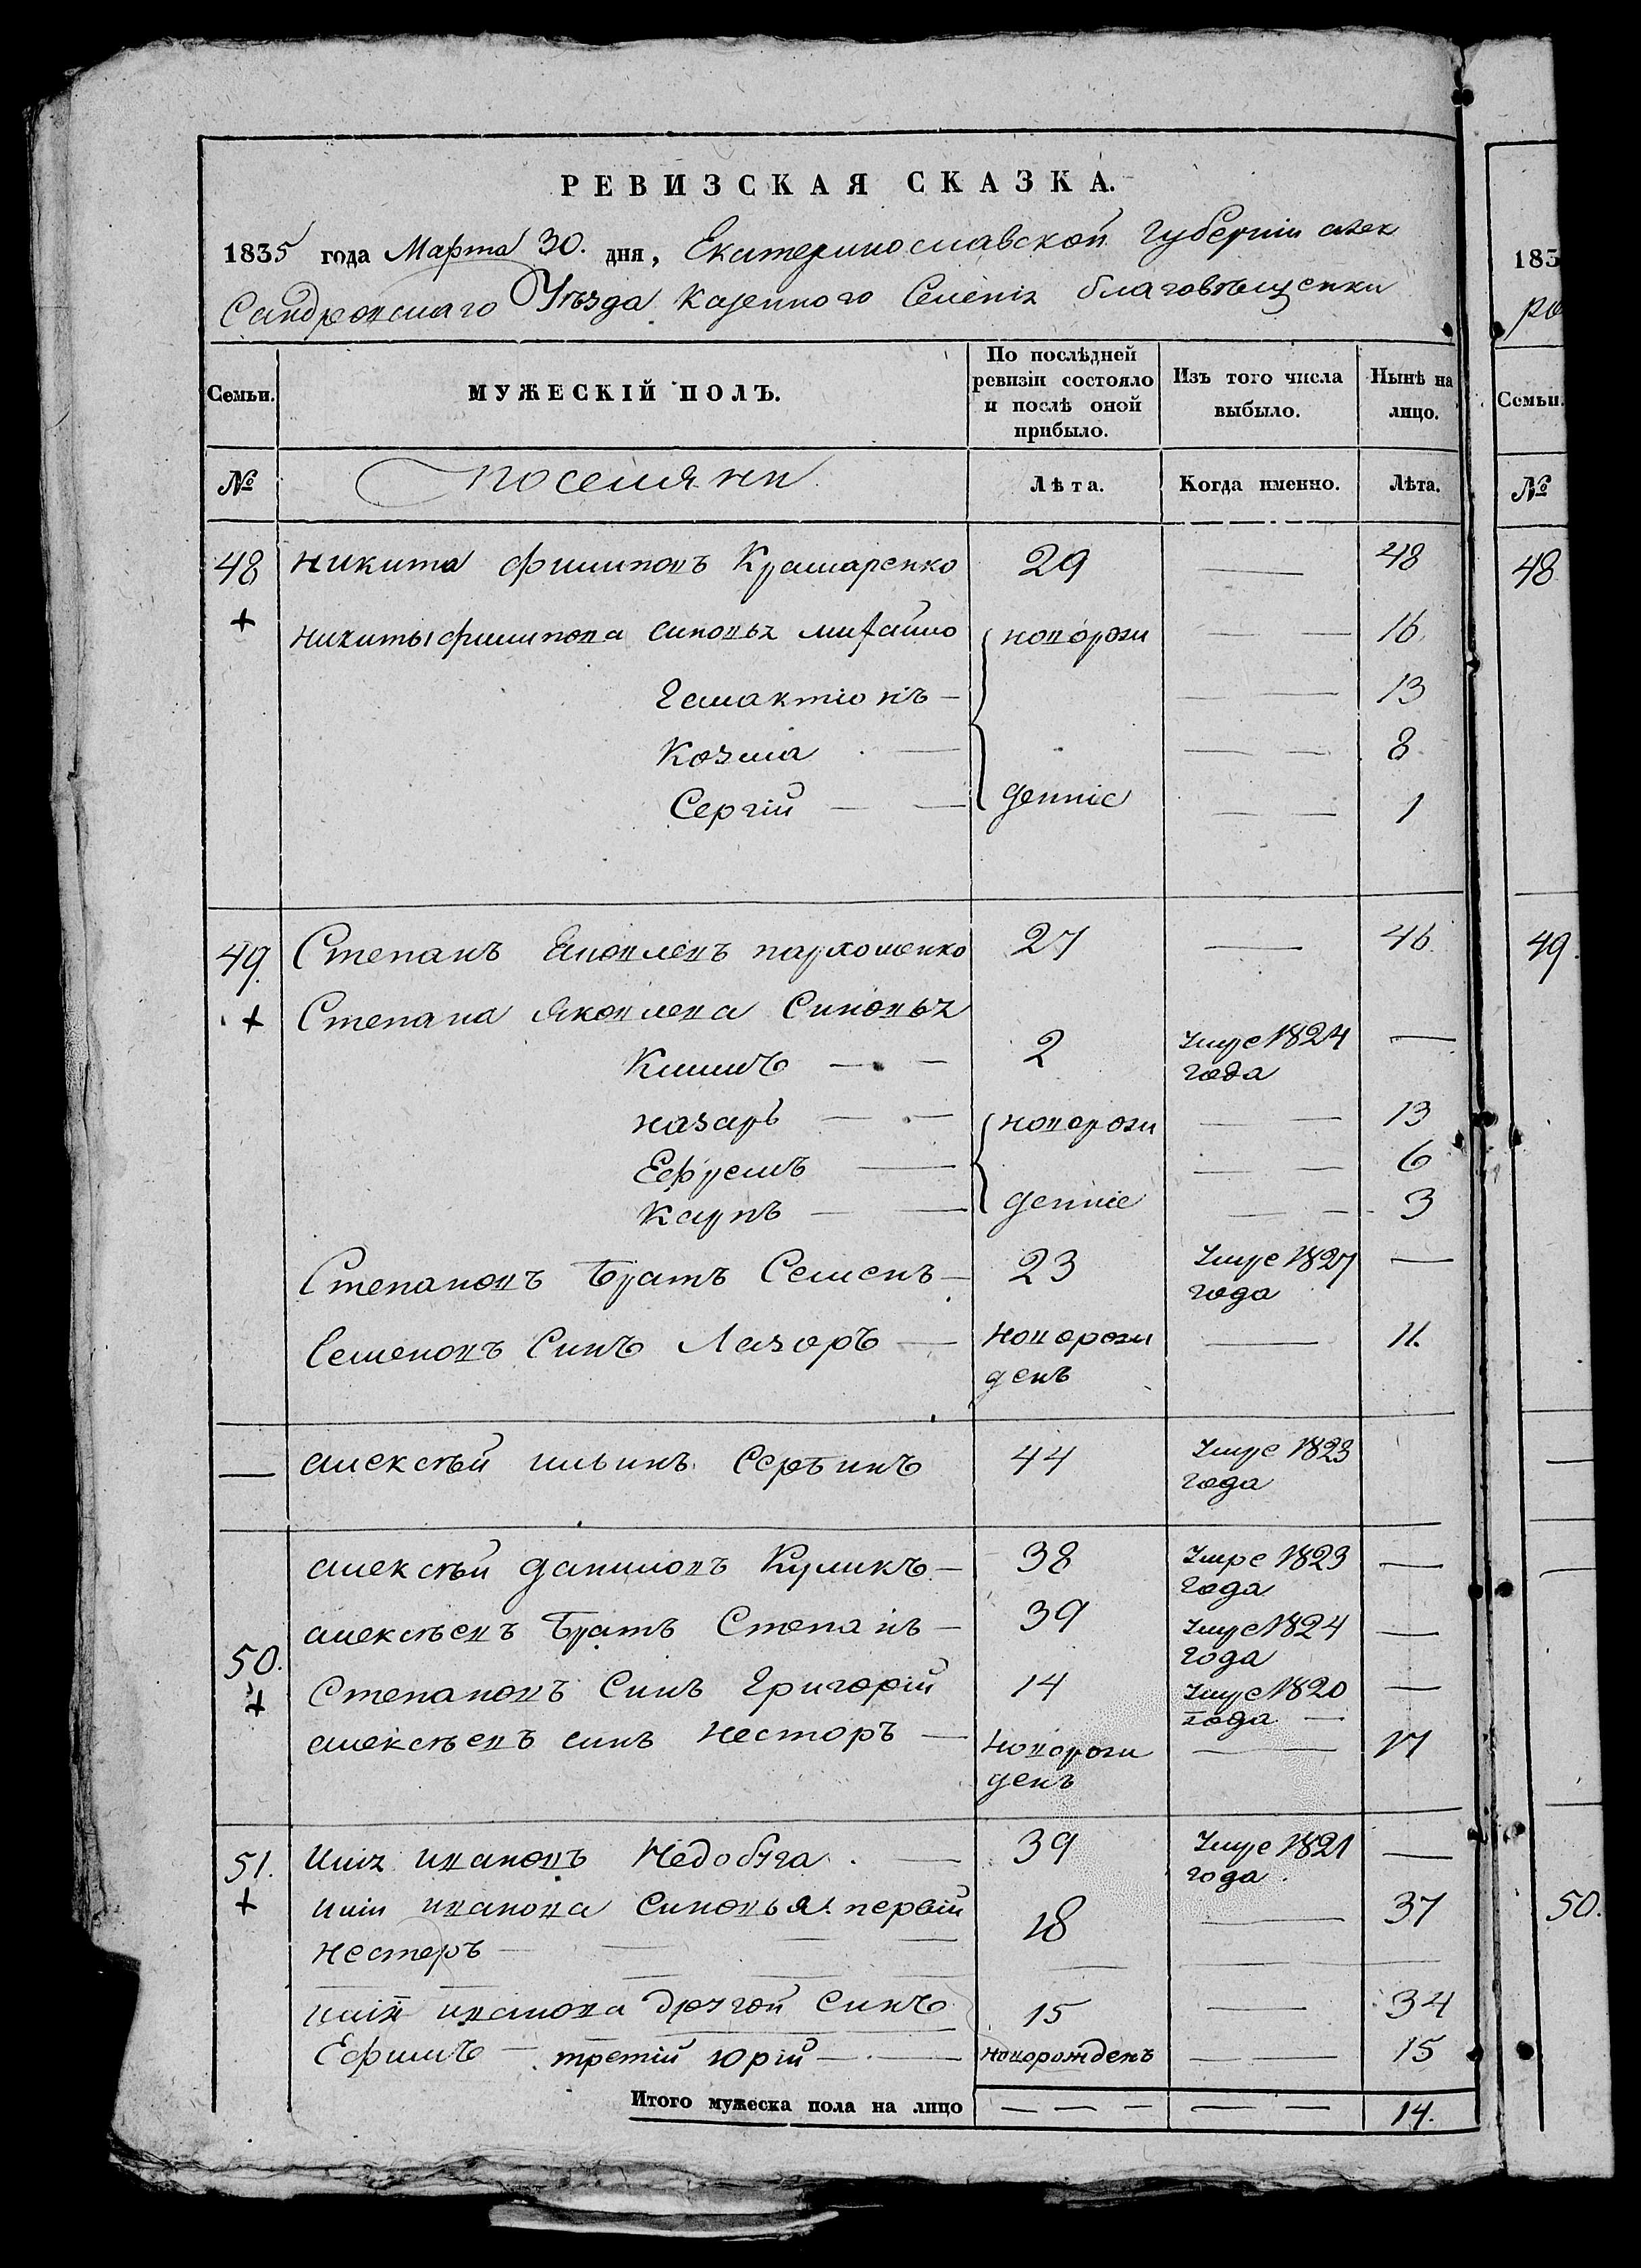 РЕВИЗСКАЯ СКАЗКА.
1835 года Марта 30. дня, Екатеринославской губерніи алек
сандровскаго Уѣзда казенного Селенія благовѣщенки
Семьи. МУЖЕСКІЙ ПОЛЪ. По послѣдней ревизіи состояло и послѣ оной прибыло. Изъ того числа выбыло. Нынѣ на лицо.
№ поселяни Лѣта. Когда именно. Лѣта.
48 никита филиповъ Крамаренко 29 — 48
+ никиты филипова синовья михайло новорожи — — 16
Галактіонъ — — — 13
Козма — — — 8
Сергій — — деннie — — 1
49. Степанъ Яковлевъ пархоменко 27 — 46
+ Степана Яковлева Синовья
Климъ — — 2 Умре 1824 —
года
назаръ — — новорожи — — 13
Ефремъ — — — 6
карпъ — — деннie — — 3
Степановъ братъ Семенъ — 23 Умре 1827 —
года
Семеновъ Синъ Лазоръ — новорожи — 11.
денъ
— алексѣй ильинъ Сербинъ 44 Умре 1823
года
алексѣй даниловъ Куликъ — 38 Умре 1823 —
года
алексѣевъ братъ Степанъ — 39 Умре 1824 —
года
50.
+ Степановъ Синъ Григорій 14 Умре 1820 —
года —
алексѣевъ синъ нестор ъ — новорожи — 17
денъ
51. илия ивановъ Недобуга. — 39 Умре 1821 —
года.
+ иліи иванова синовья: первій 18 — 37
нестеръ — — — —
иліи иванова другой синъ 15 — 34
Ефимъ — третій юрій — — новорожденъ — — 15
Итого мужеска пола на лицо — — — — — — — 14.
183
ро
Семьи.
№
48
49.
—
50.